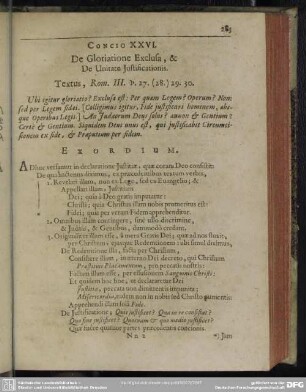 283
CONCIO XXVI.
De Gloriatione Exclusa, &
De Unitate Justificationis.
Textus, Rom. III. v. 27. (28.) 29. 30.
Ubi igitur gloriatio? Exclusa est: Per quam Legem? Operum? Non:
sed per Legem fidei. [Colligimus igitur, Fide justificari hominem, absque
Operibus Legis.] An Judæorum Deus solus? annon & Gentium?
Certè & Gentium. Siquidem Deus unus est, qui justificabit Circumcisionem
ex fide, & Præputium per fidem.
EXORDIUM.
Adhuc versamur in declaratione Justitiæ, quæ coram Deo consistit:
De qua hactenus diximus, ex præcedentium textuum verbis,
1. Revelari illam, non ex Lege, sed ex Evangelio; &
Appellari illam, Justitiam
Dei; quia à Deo gratis imputatur:
Christi; quia Christus illam nobis promeritus est:
Fidei; quia per veram Fidem apprehenditur.
2. Omnibus illam contingere, sine ullo discrimine,
& Judæis, & Gentibus,
3. Originem illam esse, à mera Gratia Dei;
per Christum; quoque Redemtionem
De Redemtione illa, facta per Christum,
Consistere illam, in æterno Dei decreto, qui Christum
pro peccatis nostris:
Factam illam esse, per effusionem Sanguinis Christi:
Et quidem hoc fine, ut declaretur Dei
Justitia, peccata non dimittens impunè;
Misericordia, eadem non in nobis sed Christo puniens:
Apprehendi illam solâ Fide.
De Justificatione; Quis justificet? Qua re consistat?
Quo fine justificet? Quotuplex & an nobis justificet?
Quæ
N n 2
Jam